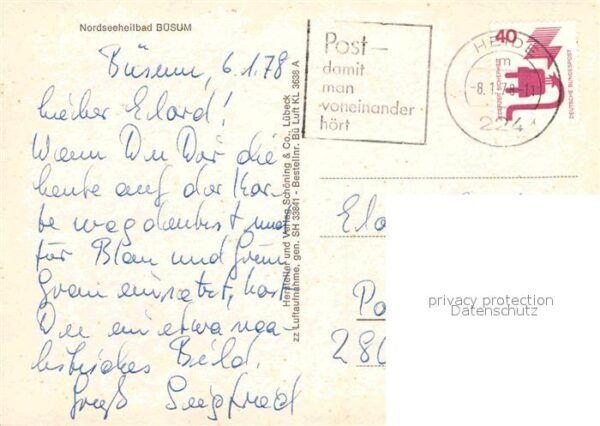 Nordseeheilbad BÜSUM
Büsum, 6.1.78
Lieber Elard!
Wenn Du Dir die
Leute auf der Kar-
te wegdenkst und
für Blau und Grün
Grau einsetzt, hast
Du ein etwa rea-
listisches Bild.
Gruß Siegfried
Hersteller und Verlag Schöning & Co., Lübeck
zz Luftaufnahme, gen. SH 33841 - Bestellnr. Bü Luft KL 3638 A
Post –
damit
man
voneinander
hört
HEIDE
m
-8.1.78-11
224
40
DEUTSCHE BUNDESPOST
Ela
Po
280
privacy protection
Datenschutz